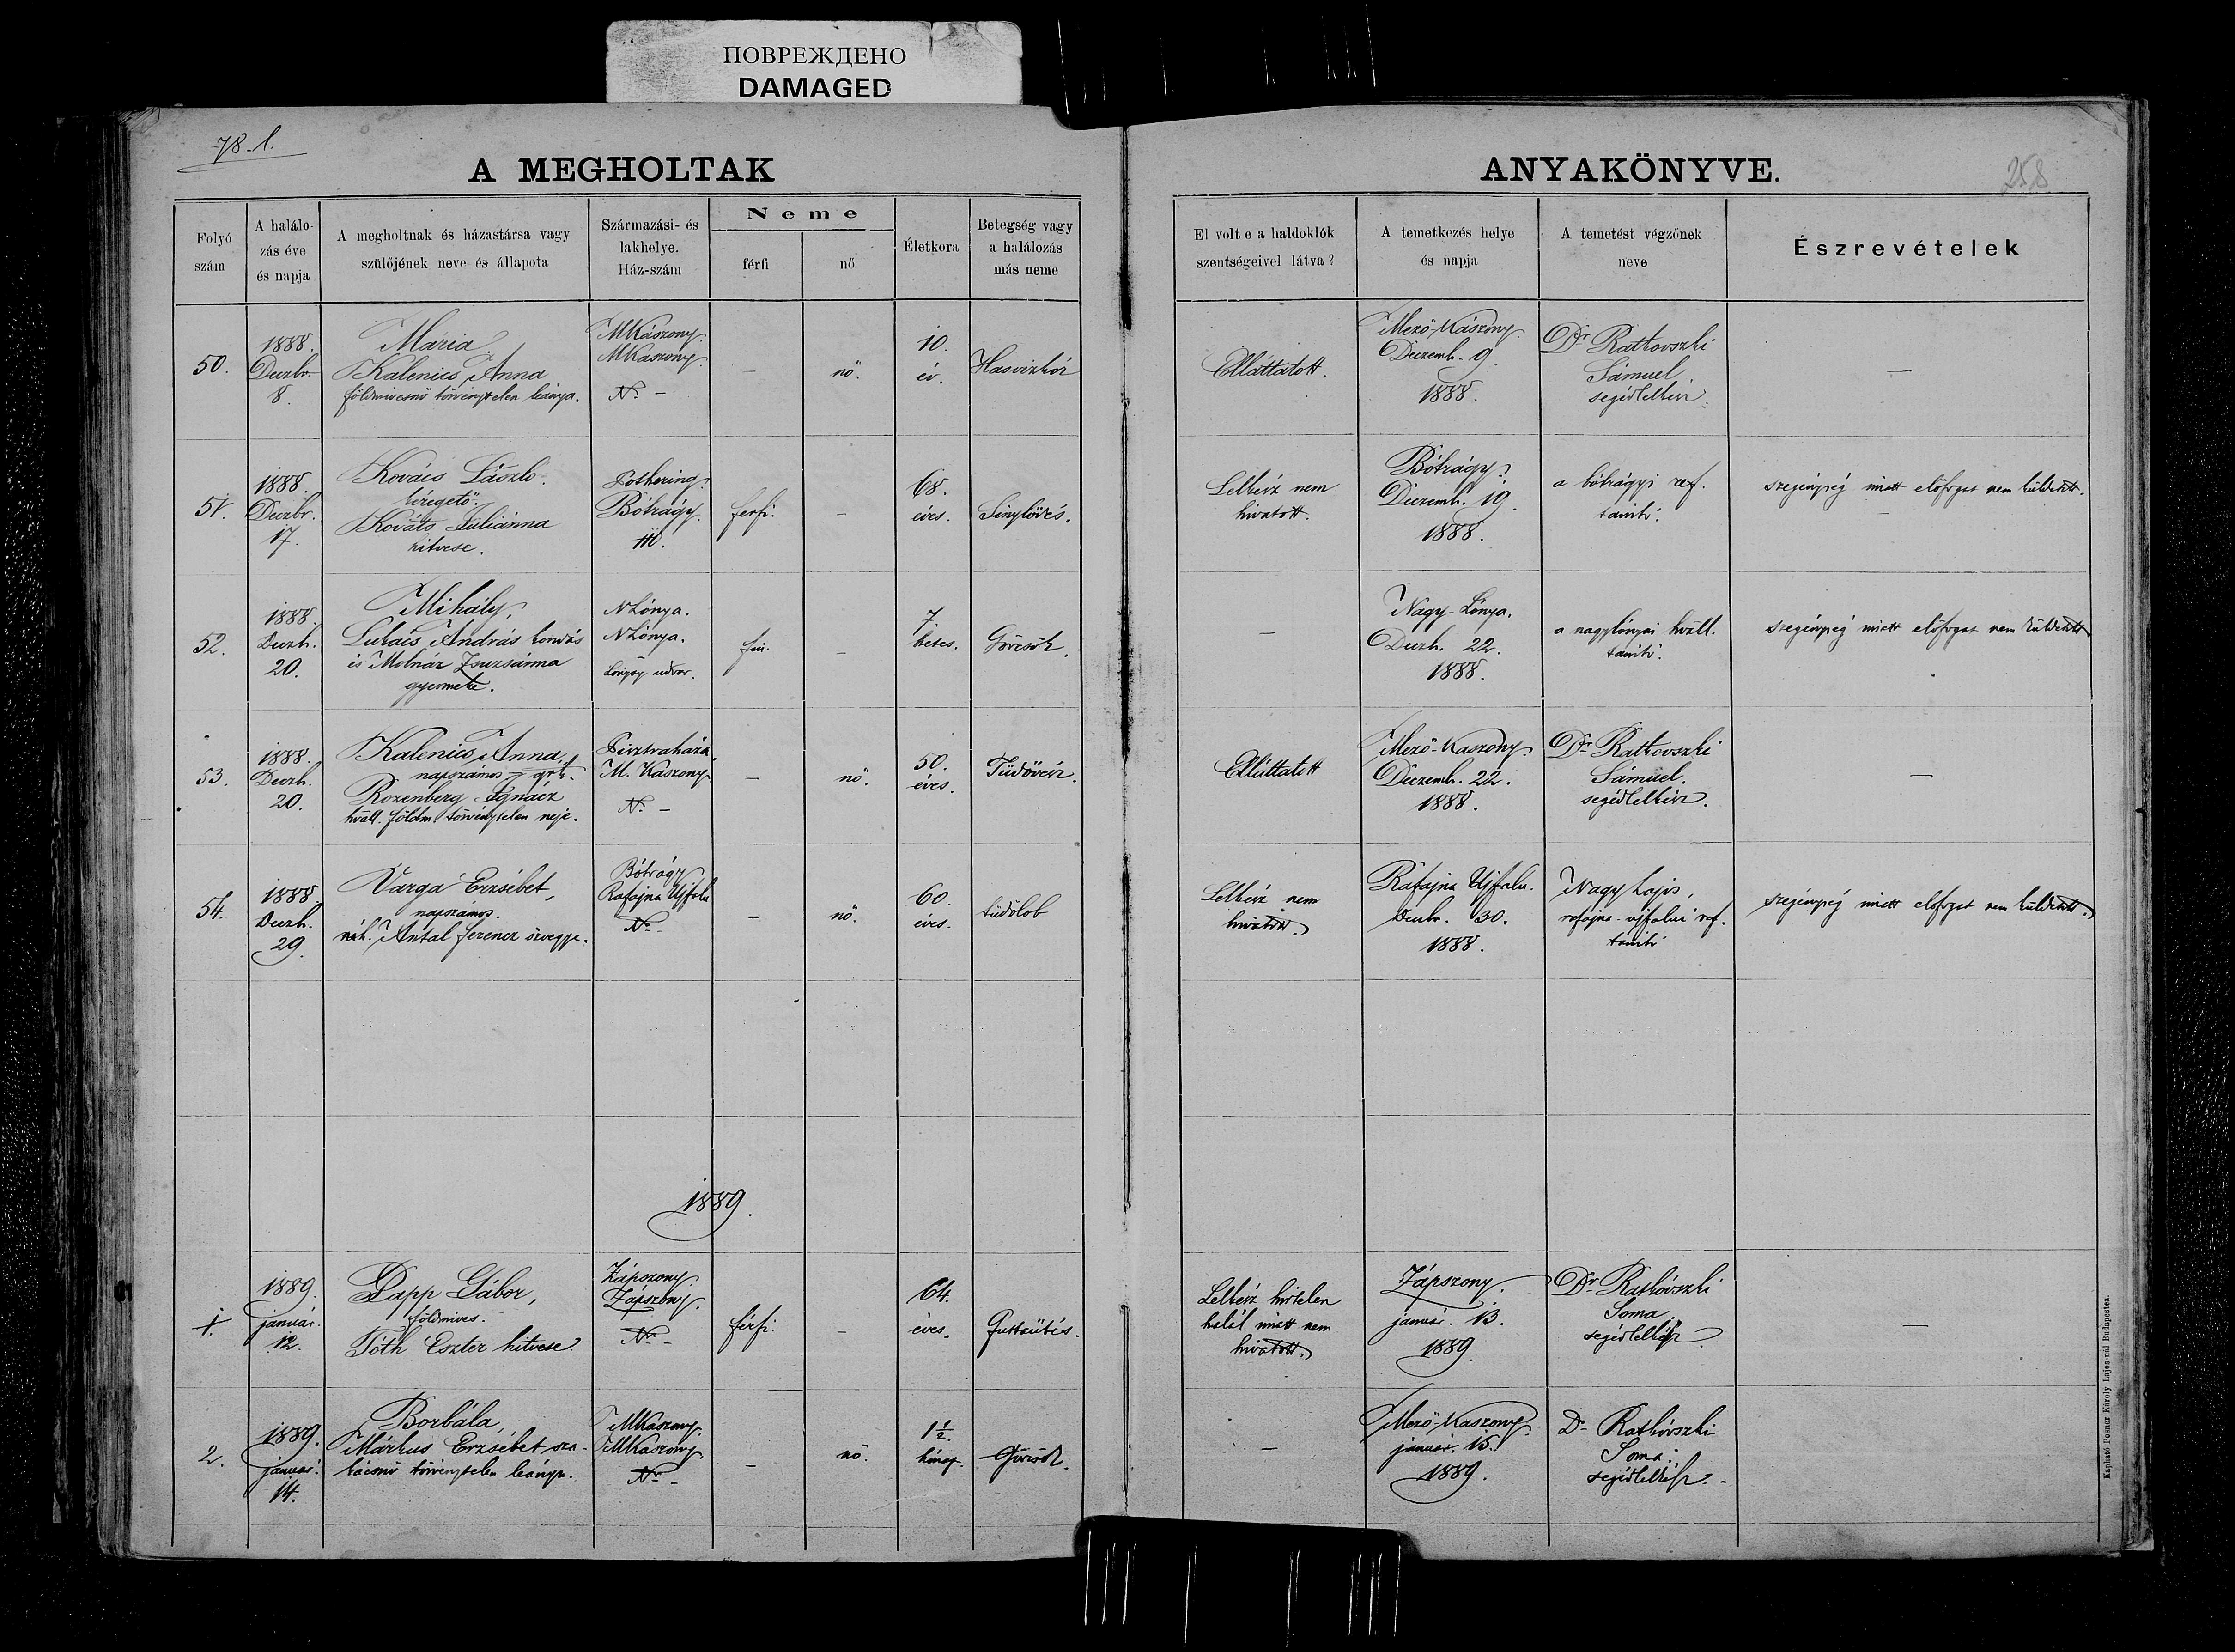 ПОВРЕЖДЕНО
DAMAGED
78. l.
A MEGHOLTAK
ANYAKÖNYVE.
258
Folyó szám
A halálo-zás éve és napja
A megholtnak és házastársa vagy szülőjének neve és állapota
Származási- és lakhelye. Ház-szám
Neme
férfi
nő
Életkora
Betegség vagy a halálozás más neme
El volt e a haldoklók szentségeivel látva?
A temetkezés helye és napja
A temetést végzőnek neve
Észrevételek
50.
1888.
Deczbr.
8.
Mária
Kalenics Anna
földmivesnő törvénytelen leánya.
MKászony.
MKaszony.
N. –
–
nő.
10.
év.
Hasvizkór
Elláttatott.
Mező-Kászony.
Deczemb. 9.
1888.
Dr. Ratkovszki
Sámuel
segédlelkész.
–
51.
1888.
Deczbr.
17.
Kovács László.
Kováts Juliánna
hitvese.
Bótrágy.
110.
ferfi.
–
68.
éves.
Lelkész nem
hivatott.
Bótrágy.
Deczemb. 19.
1888.
a bótrágyi ref.
tanitó.
szegénység miatt előfogat nem küldetett.
52.
1888.
Deczb.
20.
Mihály,
Lukács András
és Molnár Zsuzsánna
gyermeke.
NLónya.
NLónya.
Lónyay udvar.
–
7.
hetes.
Görcsök.
–
Nagy-Lónya.
Deczb. 22.
1888.
a nagylónyai
tanitó.
szegénység miatt előfogat nem küldetett
53.
1888.
Deczb.
20.
Kalenics Anna,
napszámos
Rozenberg Ignácz
földm. törvénytelen neje.
M. Kaszony
N. –
–
nő.
50.
éves.
Tüdővész.
Elláttatott
Mező-Kaszony.
Deczemb. 22.
1888.
Dr. Ratkovszki
Sámuel.
segédlelkész.
–
54.
1888.
Deczb.
29.
Varga Erzsébet,
napszámos.
néh. Antal Ferencz özvegye.
Bótrágy
Rafajna Ujfalu
N. –
–
nő.
60.
éves.
tüdőlob
Lelkész nem
hivatott.
Rafajna Ujfalu.
Deczbr. 30.
1888.
Nagy Lajos,
rafajna-ujfalui ref.
tanitó
szegénység miatt előfogat nem küldetett.
1889.
1.
1889.
január.
12.
Papp Gábor,
földmives.
Tóth Eszter hitvese
Zápszony.
Zápszony.
N. –
férfi.
–
64.
éves.
Guttaütés.
Lelkész hirtelen
halál miatt nem
hivatott.
Zápszony.
január. 13.
1889.
Dr. Ratkovszki
Soma
segédlelkész
–
2.
1889.
január.
14.
Borbála,
Márkus Erzsébet sza-
kácsnő törvénytelen leánya.
MKaszony.
MKaszony
Nr –
–
nő.
1 1/2.
hónap.
Görcsök.
–
Mező-Kaszony.
január. 15.
1889.
Dr. Ratkovszki
Soma
segédlelkész.
Kapható Posner Károly Lajos-nál Budapesten.